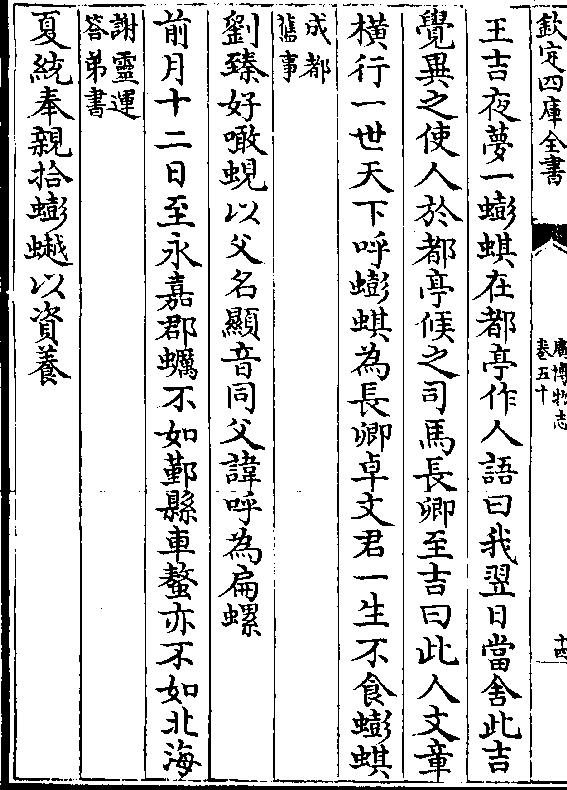 欽定四庫全書
廣博物志
卷五十
十四
王吉夜夢一蟛蜞在都亭作人語曰我翌日當舍此吉
覺異之使人於都亭候之司馬長卿至吉曰此人文章
橫行一世天下呼蟛蜞為長卿卓文君一生不食蟛蜞
成都
舊事
劉臻好噉蜆以父名顯音同父諱呼為扁螺
前月十二日至永嘉郡蠣不如鄞縣車螯亦不如北海
謝靈運
答弟書
夏統奉親拾蟛蚎以資養